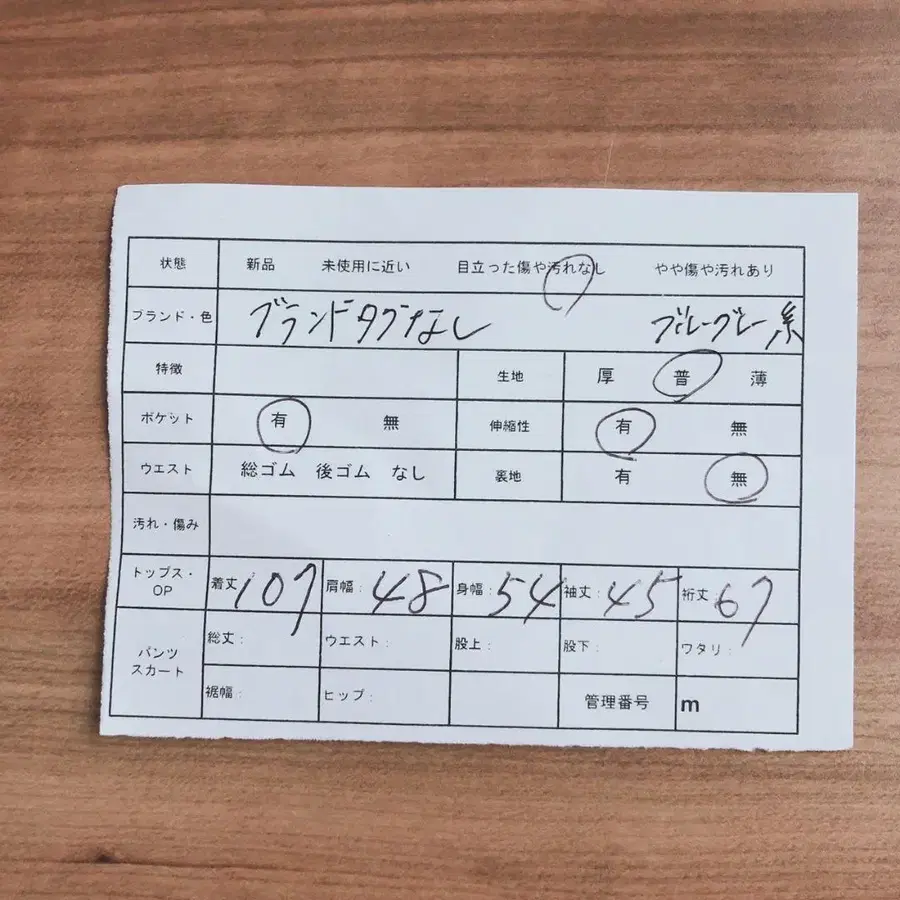 状態 新品 未使用に近い 目立った傷や汚れなし やや傷や汚れあり
ブランド・色 ブランドタグなし ブルーグレー系
特徴 生地 厚 普 薄
ポケット 有 無 伸縮性 有 無
ウエスト 総ゴム 後ゴム なし 裏地 有 無
汚れ・傷み
トップス・OP 着丈:107 肩幅:48 身幅:54 袖丈:45 裄丈:67
パンツ スカート 総丈: ウエスト: 股上: 股下: ワタリ:
裾幅: ヒップ: 管理番号 m